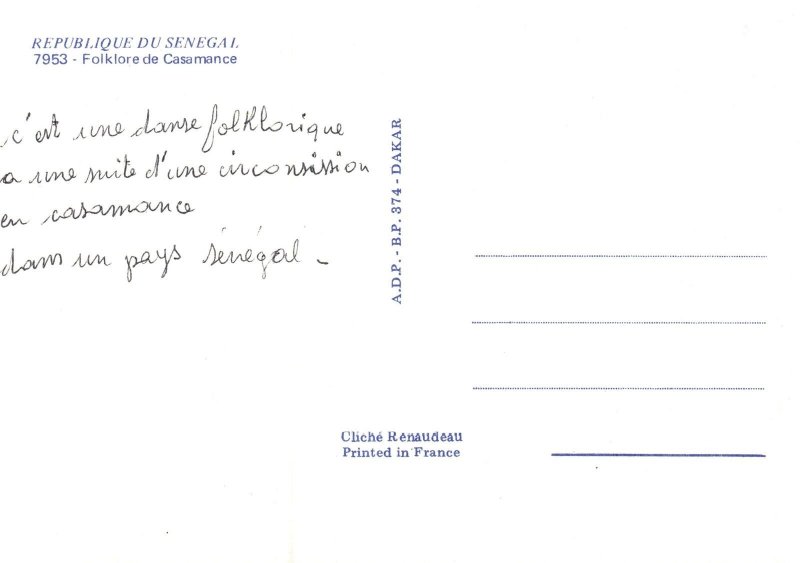 REPUBLIQUE DU SENEGAL
7953 - Folklore de Casamance
c'est une danse folklorique
a une suite d'une circonsission
en casamance
dans un pays sénégal -
A.D.P. - B.P. 374 - DAKAR
Cliché Renaudeau
Printed in France